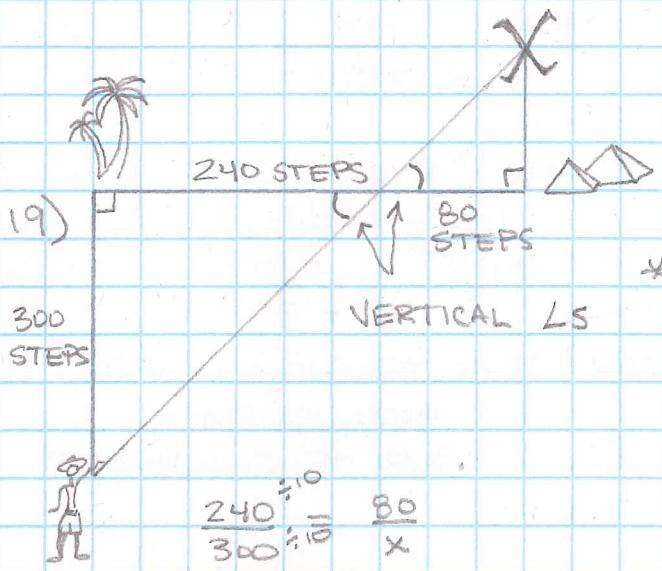 240 STEPS
19)
80
STEPS
*
300
STEPS
VERTICAL ∠S
240 ÷10 = 80
300 ÷10 x